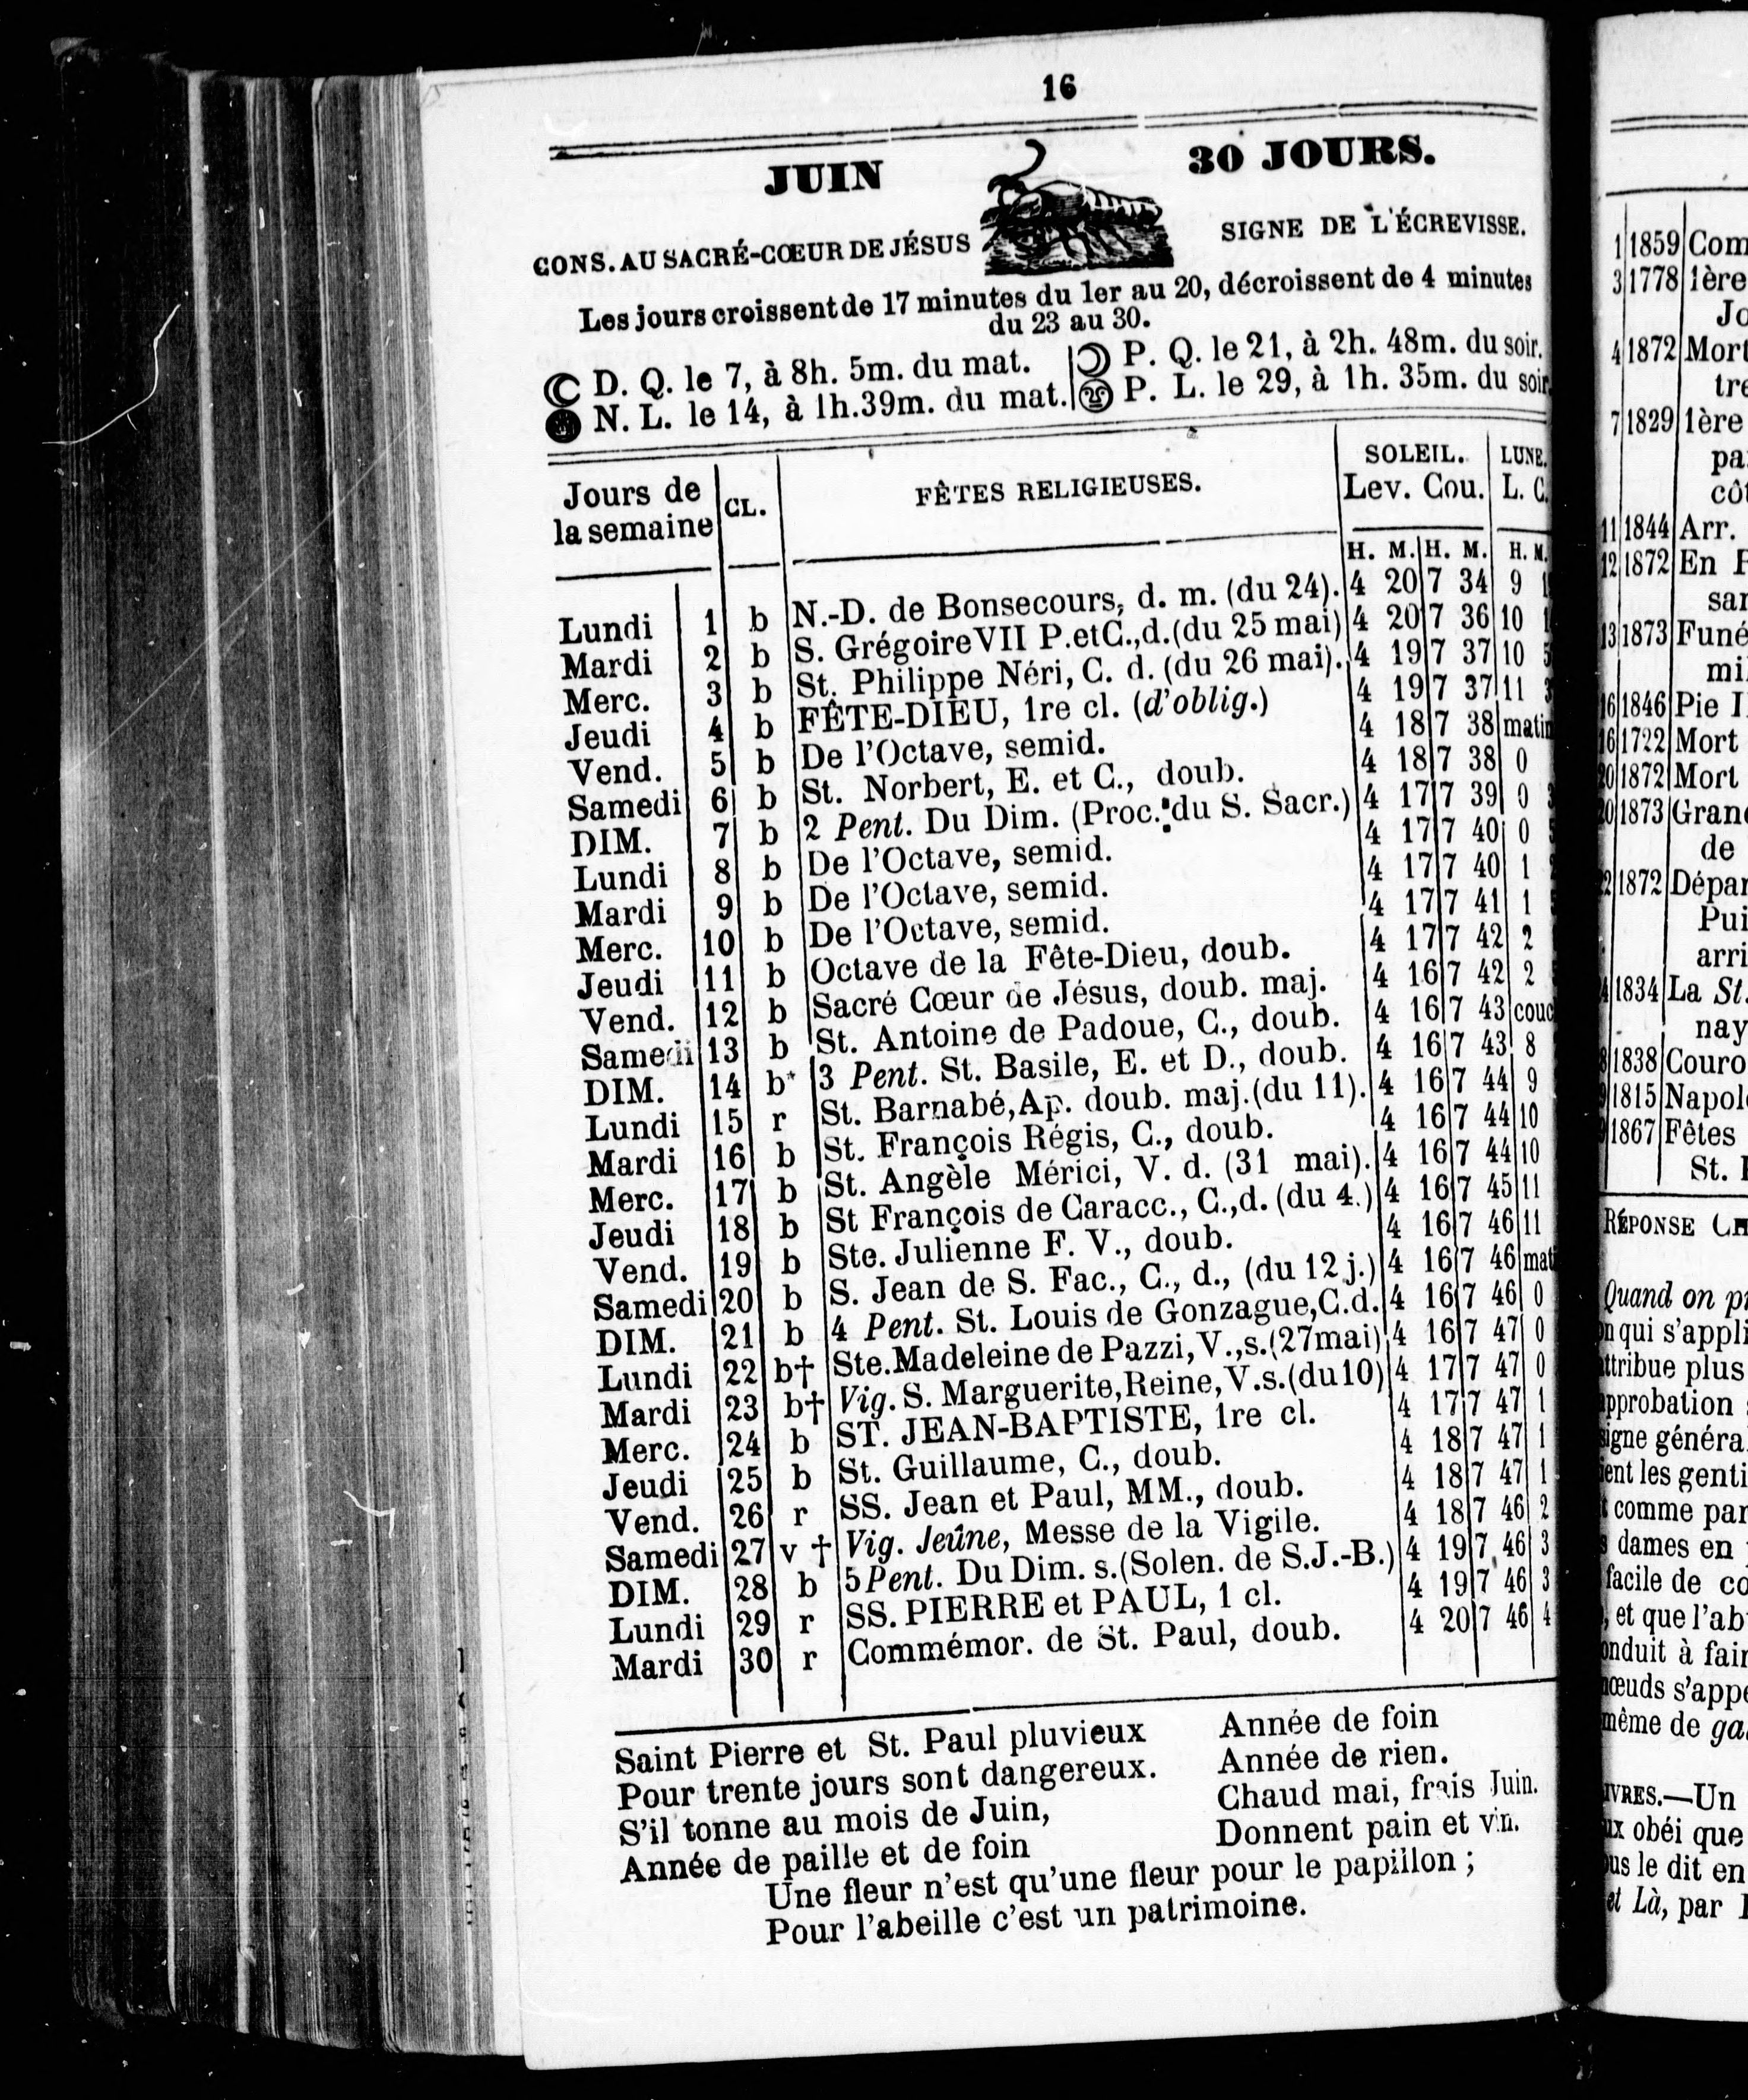 16
JUIN 30 JOURS.
CONS. AU SACRÉ-CŒUR DE JÉSUS SIGNE DE L'ÉCREVISSE.
Les jours croissent de 17 minutes du 1er au 20, décroissent de 4 minutes
du 23 au 30.
D. Q. le 7, à 8h. 5m. du mat. P. Q. le 21, à 2h. 48m. du soir.
N. L. le 14, à 1h.39m. du mat. P. L. le 29, à 1h. 35m. du soir
Jours de la semaine CL. FÊTES RELIGIEUSES. SOLEIL. LUNE.
Lev. Cou. L. C.
H. M. H. M. H. M.
Lundi 1 b N.-D. de Bonsecours, d. m. (du 24). 4 20 7 34 9
Mardi 2 b S. Grégoire VII P. et C., d. (du 25 mai) 4 20 7 36 10
Merc. 3 b St. Philippe Néri, C. d. (du 26 mai). 4 19 7 37 10
Jeudi 4 b FÊTE-DIEU, 1re cl. (d'oblig.) 4 19 7 37 11
Vend. 5 b De l'Octave, semid. 4 18 7 38 matin
Samedi 6 b St. Norbert, E. et C., doub. 4 18 7 38 0
DIM. 7 b 2 Pent. Du Dim. (Proc. du S. Sacr.) 4 17 7 39 0
Lundi 8 b De l'Octave, semid. 4 17 7 40 0
Mardi 9 b De l'Octave, semid. 4 17 7 40 1
Merc. 10 b De l'Octave, semid. 4 17 7 41 1
Jeudi 11 b Octave de la Fête-Dieu, doub. 4 17 7 42 2
Vend. 12 b Sacré Cœur de Jésus, doub. maj. 4 16 7 42 2
Samedi 13 b St. Antoine de Padoue, C., doub. 4 16 7 43 couc
DIM. 14 b* 3 Pent. St. Basile, E. et D., doub. 4 16 7 43 8
Lundi 15 r St. Barnabé, Ap. doub. maj. (du 11). 4 16 7 44 9
Mardi 16 b St. François Régis, C., doub. 4 16 7 44 10
Merc. 17 b St. Angèle Mérici, V. d. (31 mai). 4 16 7 44 10
Jeudi 18 b St François de Caracc., C., d. (du 4.) 4 16 7 45 11
Vend. 19 b Ste. Julienne F. V., doub. 4 16 7 46 11
Samedi 20 b S. Jean de S. Fac., C., d., (du 12 j.) 4 16 7 46 mat
DIM. 21 b 4 Pent. St. Louis de Gonzague, C. d. 4 16 7 46 0
Lundi 22 b† Ste. Madeleine de Pazzi, V., s. (27 mai) 4 16 7 47 0
Mardi 23 b† Vig. S. Marguerite, Reine, V. s. (du 10) 4 17 7 47 0
Merc. 24 b ST. JEAN-BAPTISTE, 1re cl. 4 17 7 47 1
Jeudi 25 b St. Guillaume, C., doub. 4 18 7 47 1
Vend. 26 r SS. Jean et Paul, MM., doub. 4 18 7 47 1
Samedi 27 v † Vig. Jeûne, Messe de la Vigile. 4 18 7 46 2
DIM. 28 b 5 Pent. Du Dim. s. (Solen. de S.J.-B.) 4 19 7 46 3
Lundi 29 r SS. PIERRE et PAUL, 1 cl. 4 19 7 46 3
Mardi 30 r Commémor. de St. Paul, doub. 4 20 7 46 4
Saint Pierre et St. Paul pluvieux
Pour trente jours sont dangereux.
S'il tonne au mois de Juin,
Année de paille et de foin
Année de foin
Année de rien.
Chaud mai, frais Juin.
Donnent pain et vin.
Une fleur n'est qu'une fleur pour le papillon ;
Pour l'abeille c'est un patrimoine.
1 1859 Com
3 1778 1ère
Jo
4 1872 Mort
tre
7 1829 1ère
pa
côt
11 1844 Arr.
12 1872 En
sar
13 1873 Funé
mil
16 1846 Pie I
16 1722 Mort
20 1872 Mort
20 1873 Grand
de
1872 Dépar
Pui
arri
1834 La St.
nay
1838 Couro
1815 Napol
1867 Fêtes
St.
RÉPONSE
Quand on p
qui s'appli
ttribue plus
pprobation
igne généra
ent les genti
comme par
dames en
facile de co
, et que l'ab
onduit à fair
œuds s'appe
même de ga
IVRES.—Un
obéi que
us le dit en
et Là, par